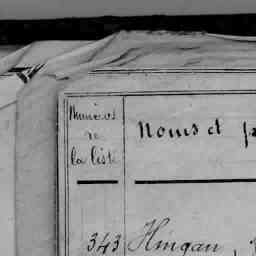 Numéros
de
la liste
Noms et p
343 Hingan,